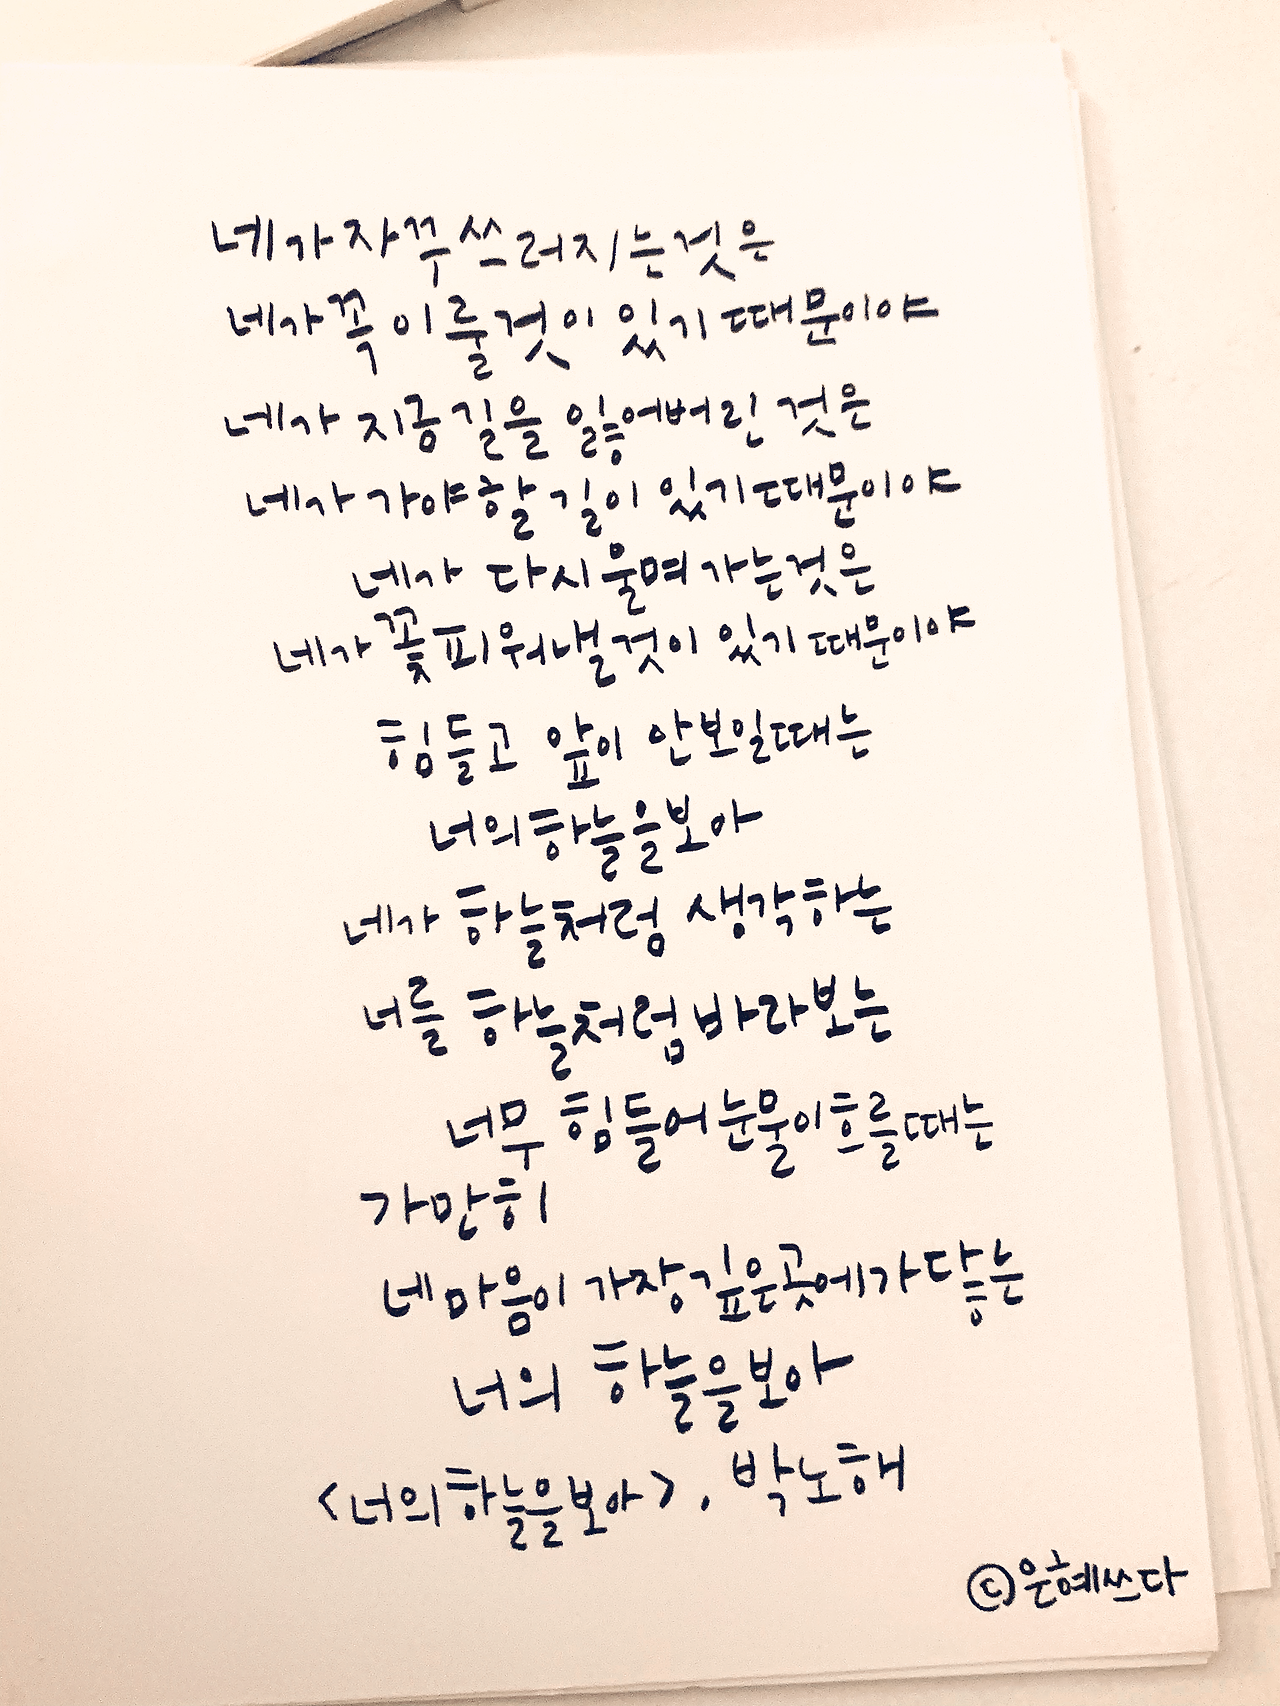 네가 자꾸 쓰러지는 것은
네가 꼭 이룰 것이 있기 때문이야
네가 지금 길을 잃어버린 것은
네가 가야할 길이 있기 때문이야
네가 다시 울며 가는 것은
네가 꽃 피워낼 것이 있기 때문이야
힘들고 앞이 안보일때는
너의 하늘을 보아
네가 하늘처럼 생각하는
너를 하늘처럼 바라보는
너무 힘들어 눈물이 흐를때는
가만히
네 마음이 가장 깊은 곳에 가 닿는
너의 하늘을 보아
<너의 하늘을 보아>, 박노해
ⓒ은혜쓰다